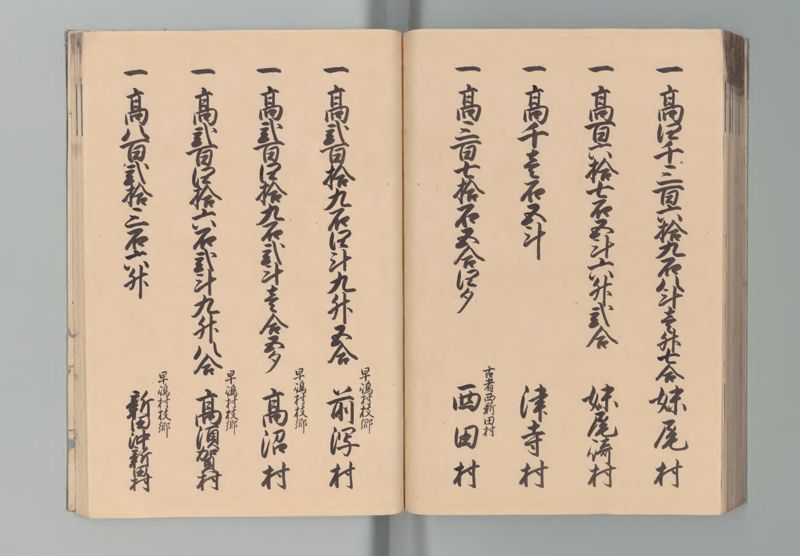 一 高四千三百六拾九石八斗壱升七合 妹尾村
一 高百六拾七石五斗六升弐合 妹尾崎村
一 高千壱石五斗 津寺村
一 高三百七拾石五合四夕 古者西新田村 西田村
一 高弐百拾九石四斗九升五合 早嶋村枝郷 前潟村
一 高弐百四拾九石弐斗壱合五夕 早嶋村枝郷 高沼村
一 高弐百四拾六石弐斗九升八合 早嶋村枝郷 高須賀村
一 高八百弐拾三石六升 早嶋村枝郷 新田沖新田村